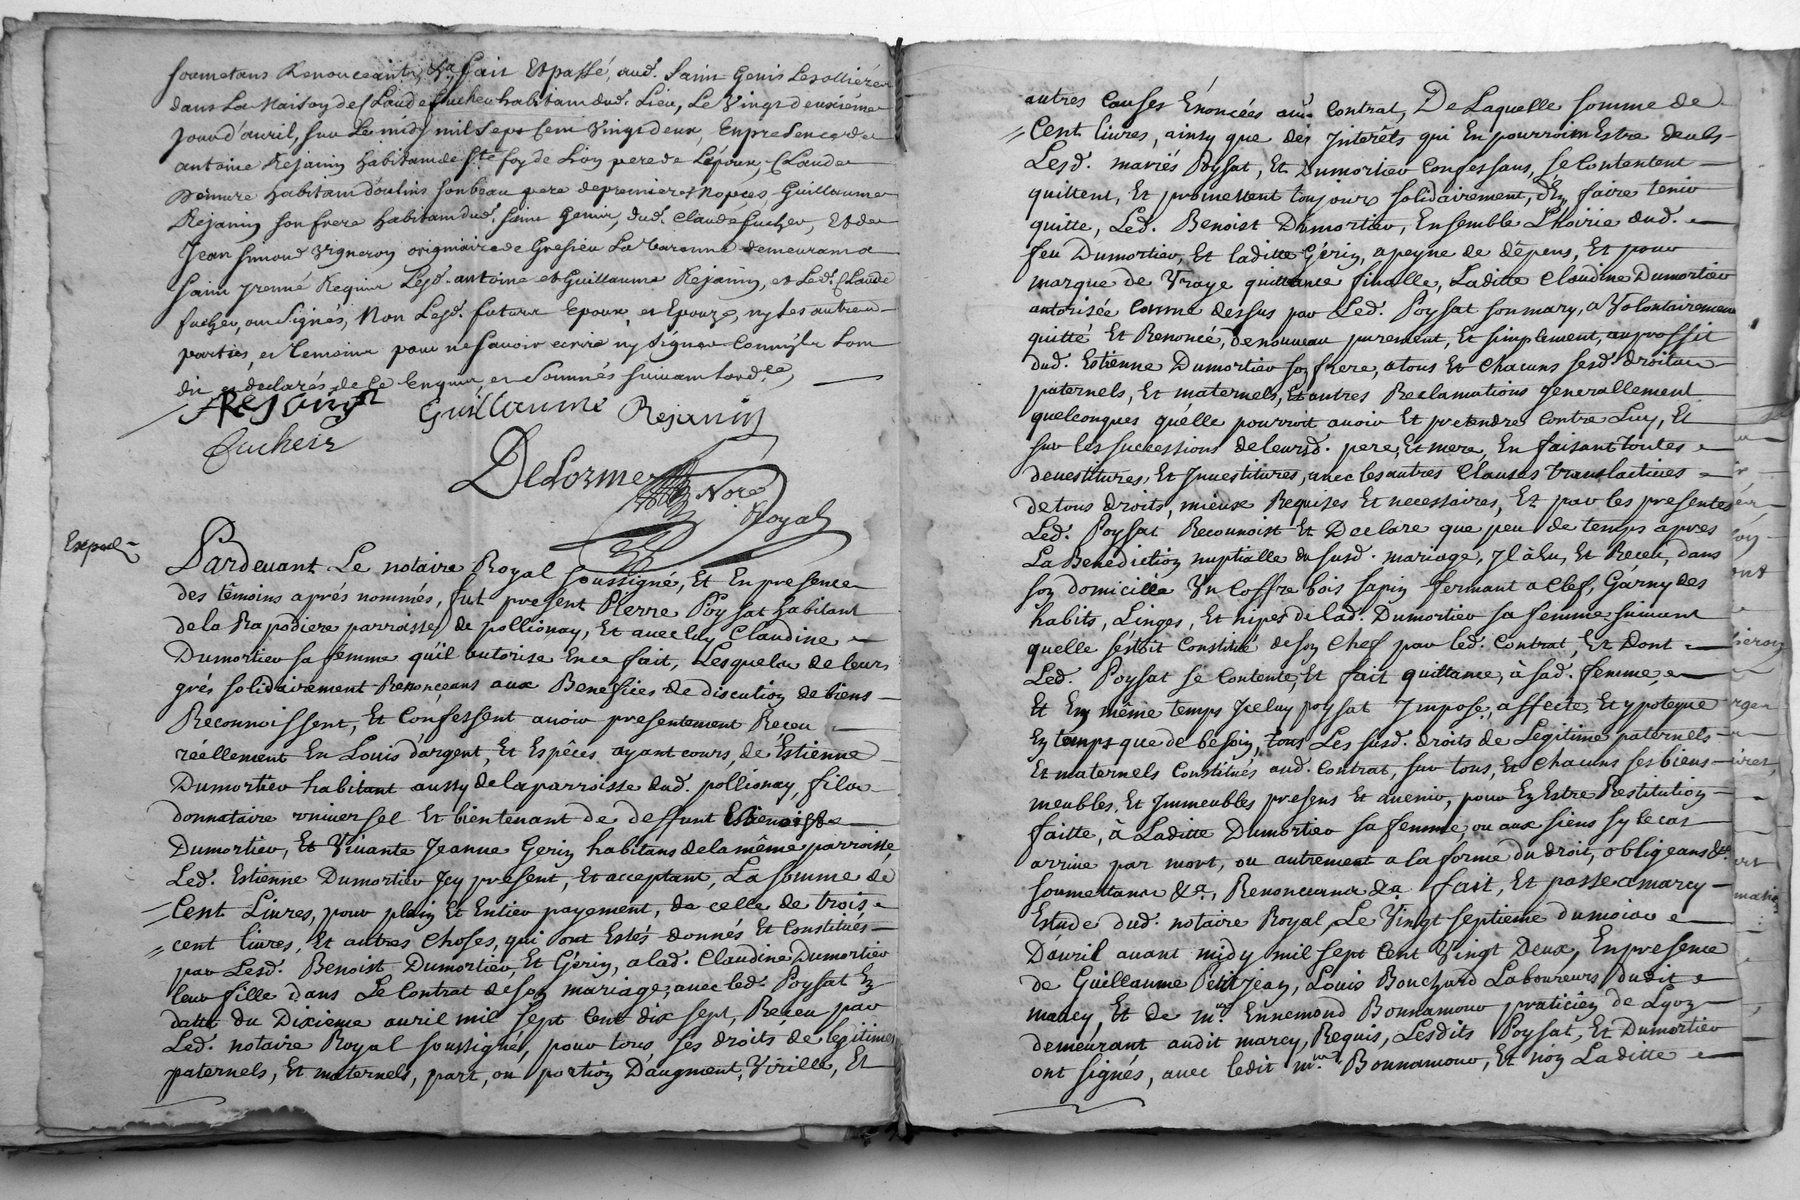 soumetans Renonceants &a fait Et passé, aud. Saint Genis Les ollières
dans La Maison de Claude fucher habitant dud. Lieu, Le Vingt deuxième
jour d'avril, sur Le midy mil Sept Cent Vingt deux, En presence de
antoine Rejanin habitant de Ste foy de Lion pere de L'époux, Claude
habitant d'oulins son beau pere de premieres Nopces, Guillaume
Rejanin son frere habitant dud. Saint Genis, dud. Claude fucher, Et de
Jean Simond Vigneron originaire de Gresieu La Varenne demeurant a
saint Jrenné Requis Lesd. antoine et Guillaume Rejanin, et Led. Claude
fucher, ont Signés, Non Lesd. futurs Epoux, et Epouze, ny Les autres
parties, et temoins pour ne savoir ecrire ny signer Comm'ils L'ont
dit et declarés de Ce Enquis, et Sommés suivant L'ord.ce
ARejanin Guillaume Rejanin
fucher
Delorme Nore
Royal
Exped.
Pardevant Le notaire Royal soussigné, Et En presence
des témoins aprés nommés, fut present Pierre Poysat habitant
de la Rapodiere parroisse de pollionay, Et avec luy Claudine
Dumortier sa fémme qu'il autorise En ce fait, Lesquels de leurs
grés solidairement Renonçeans aux Benefices de discution de biens
Reconnoissent, Et Conféssent avoir presentement Receu
réellement En Louis d'argent, Et Espêces ayant cours, de Estienne
Dumortier habitant aussy de la parroisse dud. pollionay, fils
donnataire universel Et bientenant de deffunt Benoist
Dumortier, Et Vivante Jeanne Gerin habitans de la même parroisse,
Led. Estienne Dumortier Jcy présent, Et acceptant, La somme de
Cent Livres, pour plain Et Entier payement, de celle de trois
cent livres, Et autres choses, qui ont Estés donnés Et Constitués
par Lesd. Benoist Dumortier, Et Gérin, a lad. Claudine Dumortier
leur fille dans Le Contrat de son mariage, avec led. Poysat En
datte du Dixieme avril mil sept Cent dix sept, Receu par
Led. notaire Royal soussigné, pour tous ses droits de legitimes
paternels, Et maternels, part, ou portion D'augment, Virille, Et
autres Causes Énoncées aud. Contrat, De Laquelle somme de
Cent livres, ainsy que des Jnterêts qui En pourroint Estre deubs
Lesd. mariés Poysat, Et Dumortier Confessans, se Contentent
quittent, Et promettent toujours solidairement, d'En faire tenir
quitte, Led. Benoist Dumortier, Ensemble L'hoirie dud.
feu Dumortier, Et laditte Gérin, a peyne de dépens, Et pour
marque de Vraye quittance finalle, Laditte Claudine Dumortier
autorisée Comme dessus par Led. Poysat son mary, a Volontairement
quitté Et Renoncé, de nouveau purement, Et simplement, au proffit
dud. Estienne Dumortier son frere, a tous Et chacuns sesd. droits
paternels, Et maternels, Et autres Reclamations generallement
quelconques qu'elle pourroit avoir Et pretendre Contre Luy, Et
sur les successions de leursd. pere, Et mere, En faisant toutes
devestitures, Et Jnvestitures, avec les autres Clauses translactives
de tous droits, mieux Requises Et necessaires, Et par les presentes
Led. Poysat Reconnoist Et Declare que peu de temps apres
La Benediction nuptialle du susd. mariage, Jl à Eu, Et Receu, dans
son domicille Vn Coffre bois sapin fermant a Clef, Garny des
habits, Linges, Et nipes de lad. Dumortier sa femme suivant
quelle s'étoit Constitué de son Chef par led. Contrat, Et dont
Led. Poysat se Contente, Et fait quittance, à sad. femme,
Et En même temps Jceluy poysat Jmpose, affecte, Et ypoteque
En temps que de besoin, tous Les susd. droits de Legitimes paternels
Et maternels Constitués aud. Contrat, sur tous, Et Chacuns ses biens
meubles, Et Jmmeubles presens Et avenir, pour En Estre Restitution
faitte, à Laditte Dumortier sa femme, ou aux siens sy le cas
arrive par mort, ou autrement a la forme du droit, obligeans &a
soumettans &a, Renonceans &a fait, Et passé a marcy
Estude dud. notaire Royal, Le Vingt septieme du mois
D'avril avant midy mil sept Cent Vingt Deux, En presence
de Guillaume Petitjean, Louis Bouchard Laboureurs dudit
marcy, Et de mr. Ennemond Bonnamour praticien de Lyon
demeurant audit marcy, Requis, Lesdits Poysat, Et Dumortier
ont signés, avec ledit mr. Bonnamour, Et non Laditte